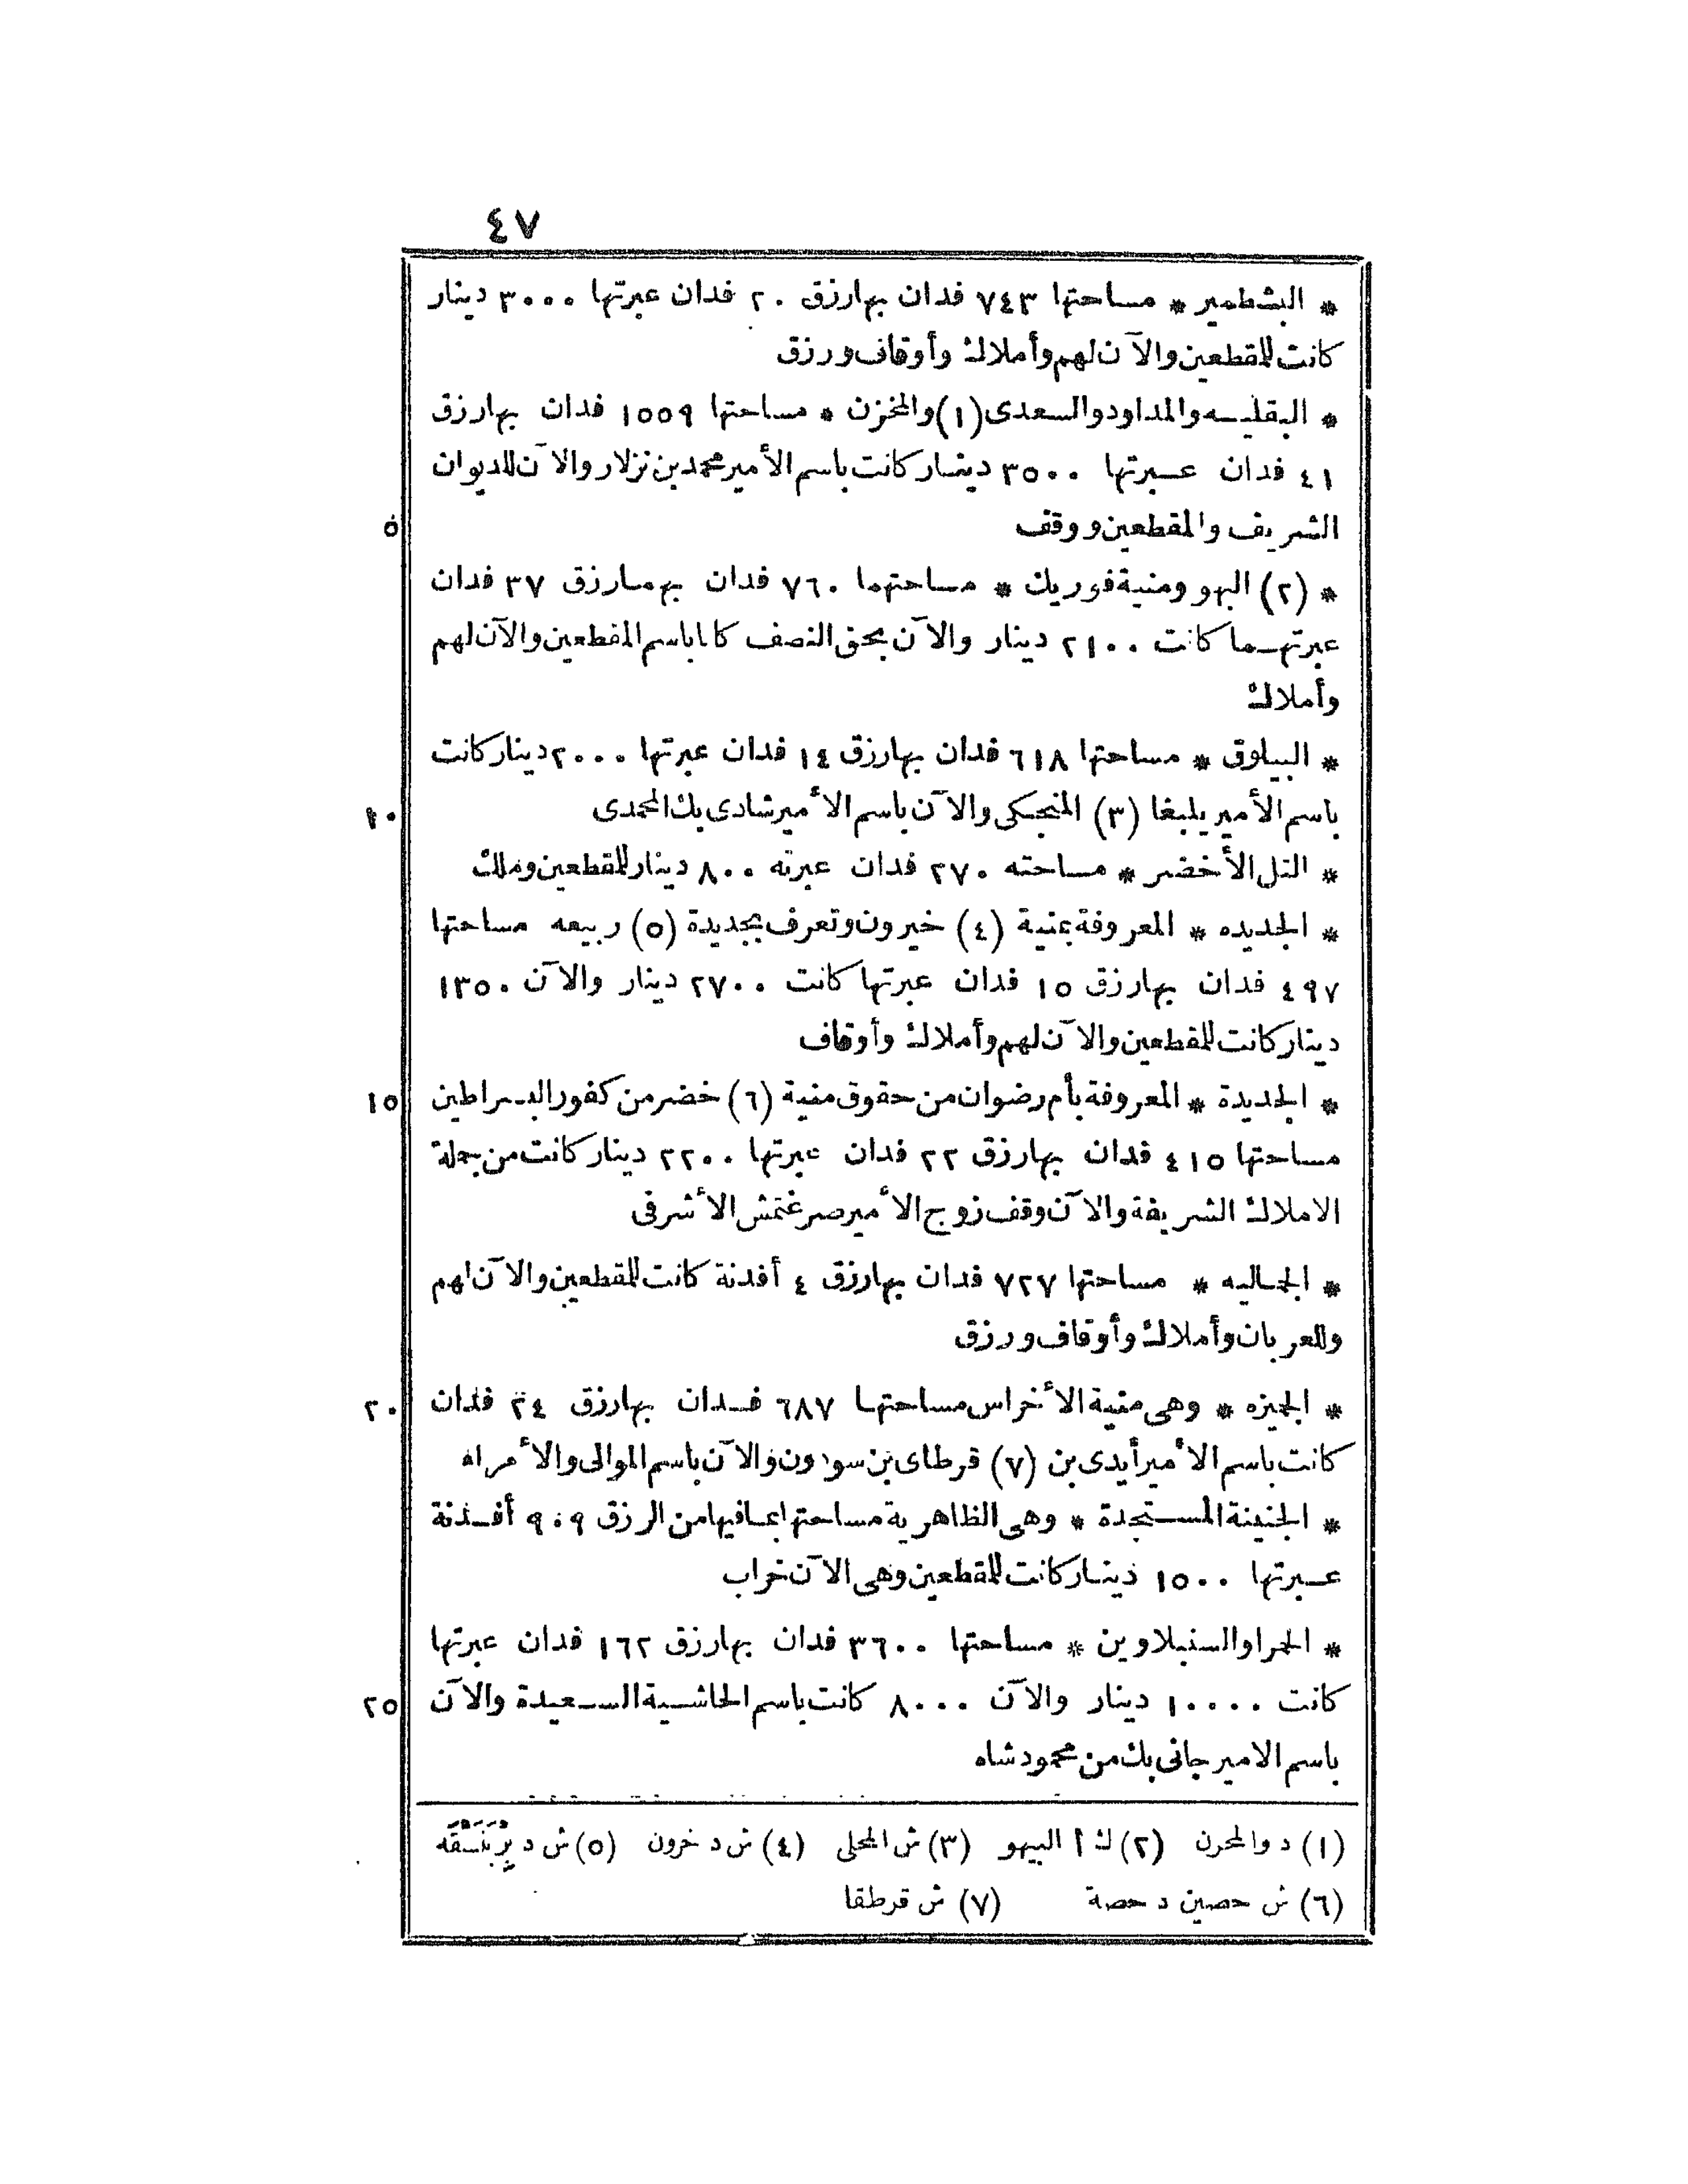 ٤٧
* البشطمير * مساحتها ٧٤٣ فدان بها رزق ٢٠ فدان عبرتها ٣٠٠٠ دينار
كانت للمقطعين والآن لهم وأملاك وأوقاف ورزق
* البقليـه والمداود والسعدى (١) والمخزن * مساحتها ١٥٥٩ فدان بها رزق
٤١ فدان عبرتها ٣٥٠٠ دينار كانت باسم الأمير محمد بن نزلار والآن للديوان
الشريف والمقطعين ووقف
٥
* (٢) البهو ومنية فوريك * مساحتهما ٧٦٠ فدان بهما رزق ٣٧ فدان
عبرتهما كانت ٢١٠٠ دينار والآن بحق النصف كانا باسم المقطعين والآن لهم
وأملاك
* البيلوق * مساحتها ٦١٨ فدان بها رزق ١٤ فدان عبرتها ٢٠٠٠ دينار كانت
باسم الأمير يلبغا (٣) المنجكى والآن باسم الأمير شادى بك المحمدى
١٠
* التل الأخضر * مساحته ٢٧٠ فدان عبرته ٨٠٠ دينار للمقطعين وملك
* الجديده * المعروفة بمنية (٤) خيرون وتعرف بجديدة (٥) ربيعه مساحتها
٤٩٧ فدان بها رزق ١٥ فدان عبرتها كانت ٢٧٠٠ دينار والآن ١٣٥٠
دينار كانت للمقطعين والآن لهم وأملاك وأوقاف
* الجديدة * المعروفة بأم رضوان من حقوق منية (٦) خضر من كفور البسراطين
١٥
مساحتها ٤١٥ فدان بها رزق ٢٢ فدان عبرتها ٢٢٠٠ دينار كانت من جملة
الاملاك الشريفة والآن وقف زوج الأمير صرغتمش الأشرفى
* الجماليه * مساحتها ٧٢٧ فدان بها رزق ٤ أفدنة كانت للمقطعين والآن لهم
وللعربان وأملاك وأوقاف ورزق
* الجميزه * وهى منية الأخراس مساحتها ٦٨٧ فدان بها رزق ٢٤ فدان
٢٠
كانت باسم الأمير أيدى بن (٧) قرطاى بن سودون والآن باسم الموالى والأمراء
* الجنينة المستجدة * وهى الظاهرية مساحتها بما فيها من الرزق ٩٠٩ أفدنة
عبرتها ١٥٠٠ دينار كانت للمقطعين وهى الآن خراب
* الحمرا والسنبلاوين * مساحتها ٣٦٠٠ فدان بها رزق ١٦٢ فدان عبرتها
كانت ١٠٠٠٠ دينار والآن ٨٠٠٠ كانت باسم الحاشية السعيدة والآن
٢٥
باسم الامير جانى بك من محمود شاه
(١) د والمحرن (٢) ك أ البيهو (٣) ش المحلى (٤) ش د خرون (٥) ش د
(٦) ش حصين د حصة (٧) ش قرطقا